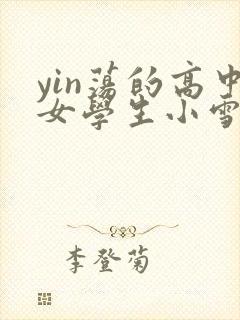 yin蕩的高中
女學生小雪
李登菊